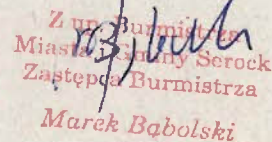 Z up. Burmistrza
Miasta i Gminy Serock
Zastępca Burmistrza
Marek Bąbolski